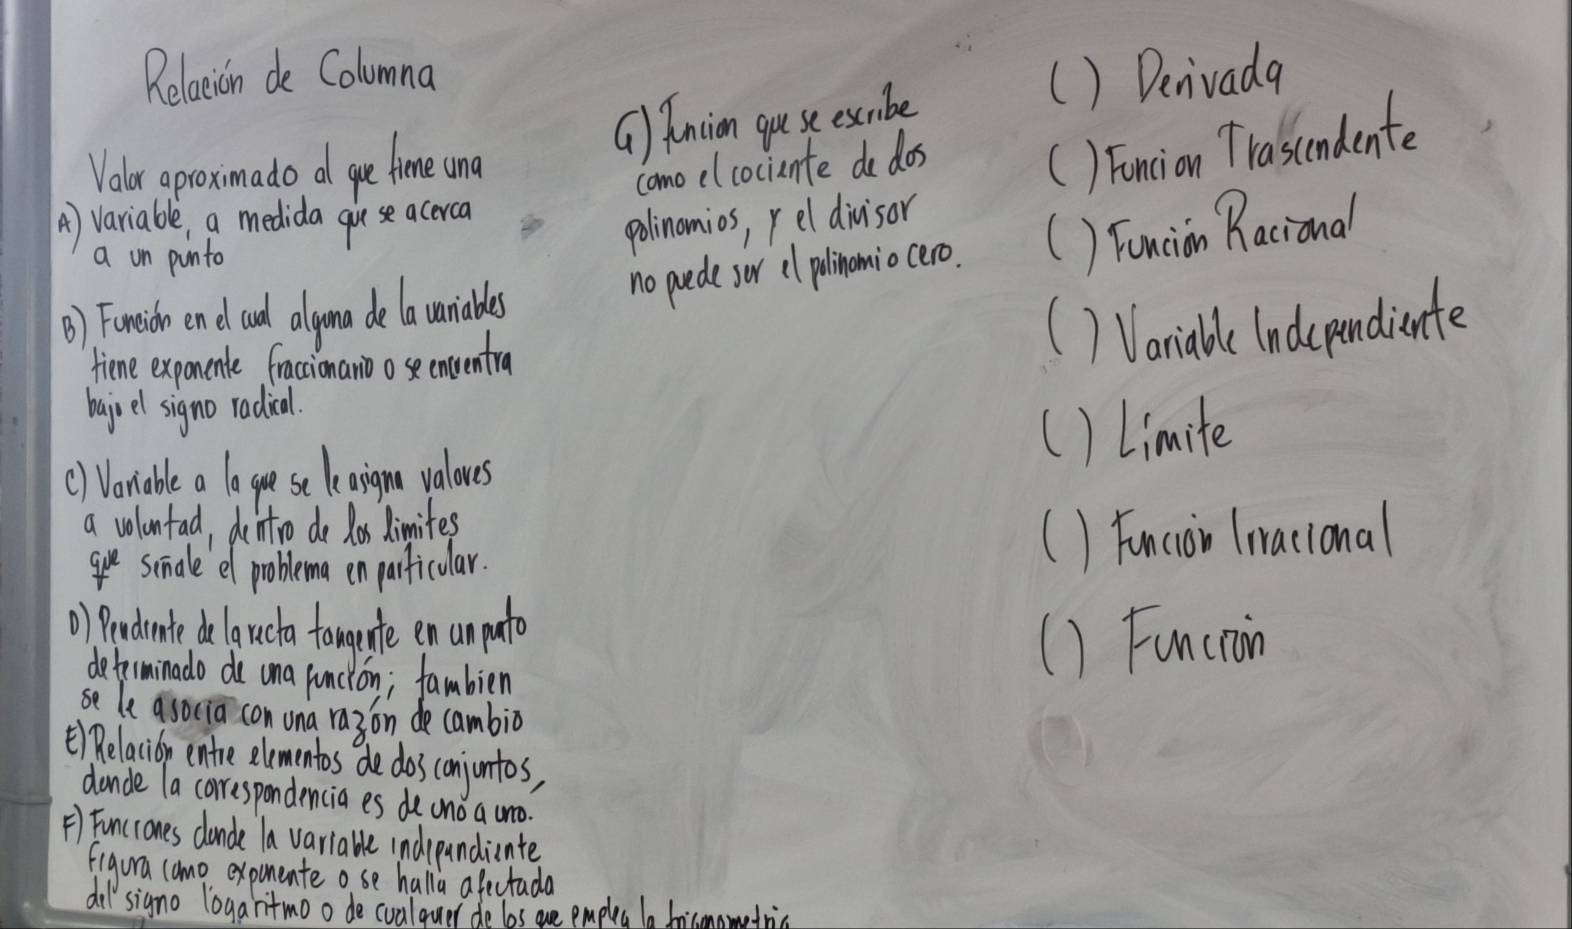 Relación de Columna
Valor aproximado al que tiene una
A) variable, a medida que se acerca
a un punto
B) Función en el cual alguna de la variables
tiene exponente fraccionario o se encuentra
bajo el signo radical.
C) Variable a la que se le asigna valores
a voluntad, dentro de los limites
que señale el problema en particular.
D) Pendiente de la recta tangente en un punto
determinado de una función; tambien
se le asocia con una razón de cambio
E) Relación entre elementos de dos conjuntos,
donde la correspondencia es de uno a uno.
F) Funciones donde la variable independiente
figura como exponente o se halla afectada
del signo logaritmo o de cualquier de los que emplea la trigonometria
G) Funcion que se escribe
como el cociente de dos
polinomios, y el divisor
no puede ser el polinomio cero.
( ) Derivada
( ) Funcion Trascendente
( ) Función Racional
( ) Variable Independiente
( ) Límite
( ) Función Irracional
( ) Función